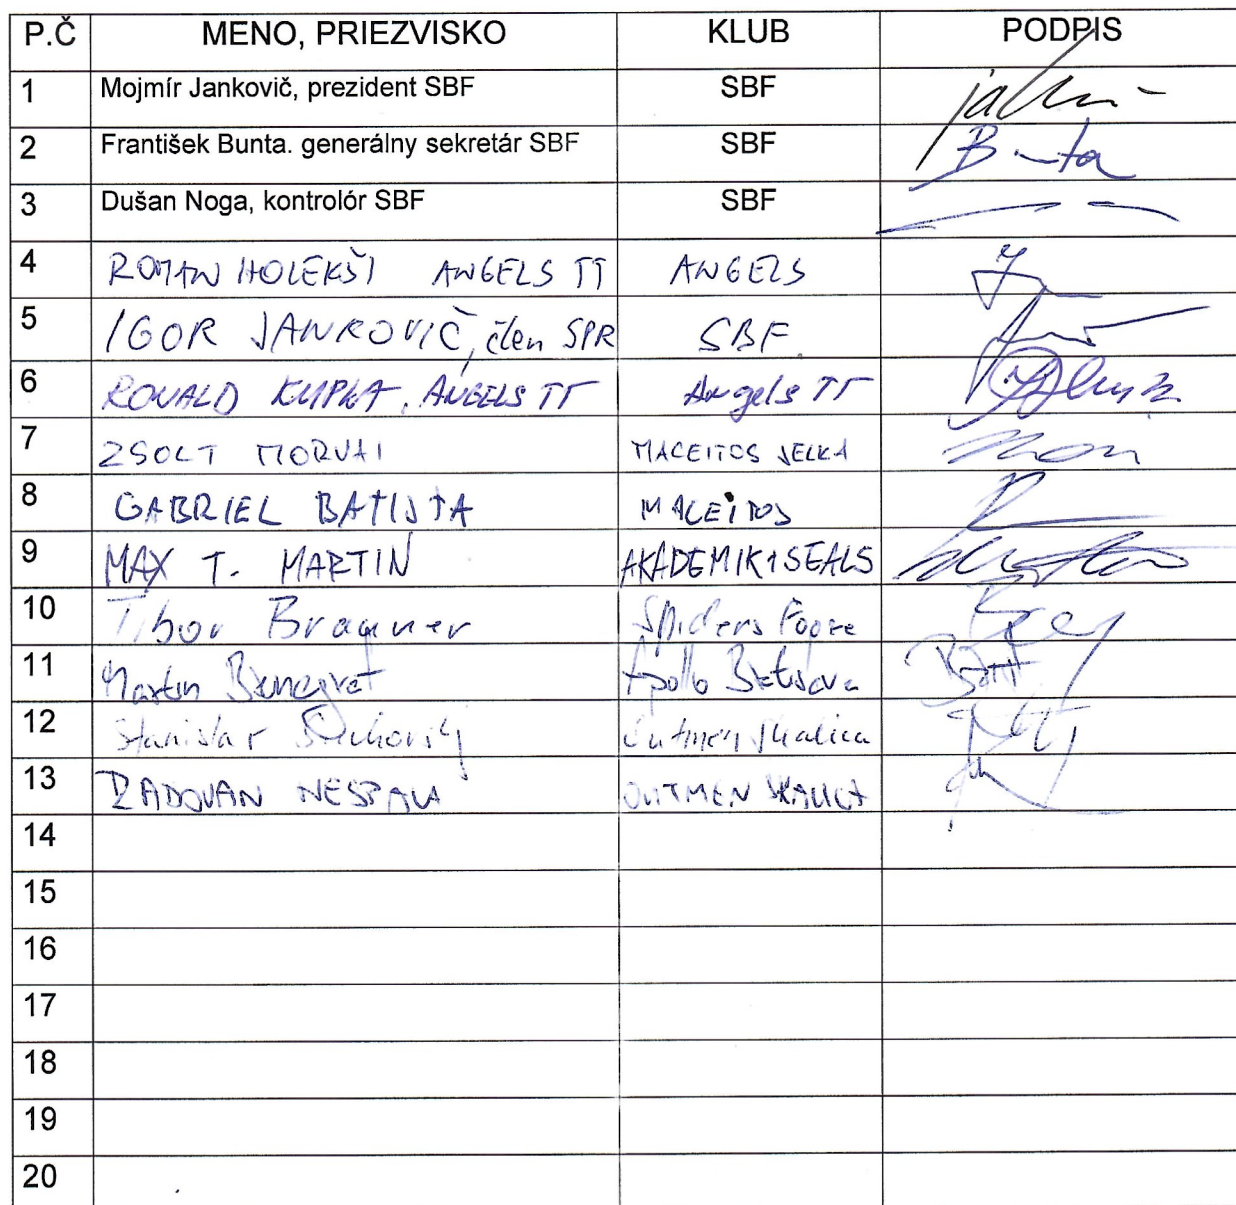 P.Č MENO, PRIEZVISKO KLUB PODPIS
1 Mojmír Jankovič, prezident SBF SBF
2 František Bunta. generálny sekretár SBF SBF Bunta
3 Dušan Noga, kontrolór SBF SBF
4 ROMAN HOLEKŠI ANGELS TT ANGELS
5 IGOR JANKOVIČ, člen SPR SBF
6 RONALD KUPKA, ANGELS TT Angels TT
7 ZSOLT MORVAI MACEITOS JELKA
8 GABRIEL BATISTA MACEITOS
9 MAX T. MARTIN AKADEMIK1SEALS
10 Tibor Bragner Spiders
11 Martin Apollo
12 Stanislav Outmen Skalica
13 RADOVAN OUTMEN SKALICA
14
15
16
17
18
19
20